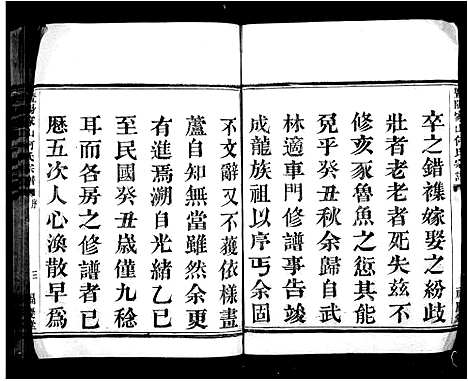 卒之錯襍嫁娶之紛歧
壯者老老者死失兹不
修亥豕魯魚之愆其能
免乎癸丑秋余歸自武
林適車門修譜事告竣
成龍族祖以序丐余固
不文辭又不獲依樣畫
蘆自知無當雖然余更
有進焉溯自光緒乙巳
至民國癸丑歲僅九稔
耳而各房之修譜者已
歷五次人心渙散早爲
山何氏宗譜 序 三